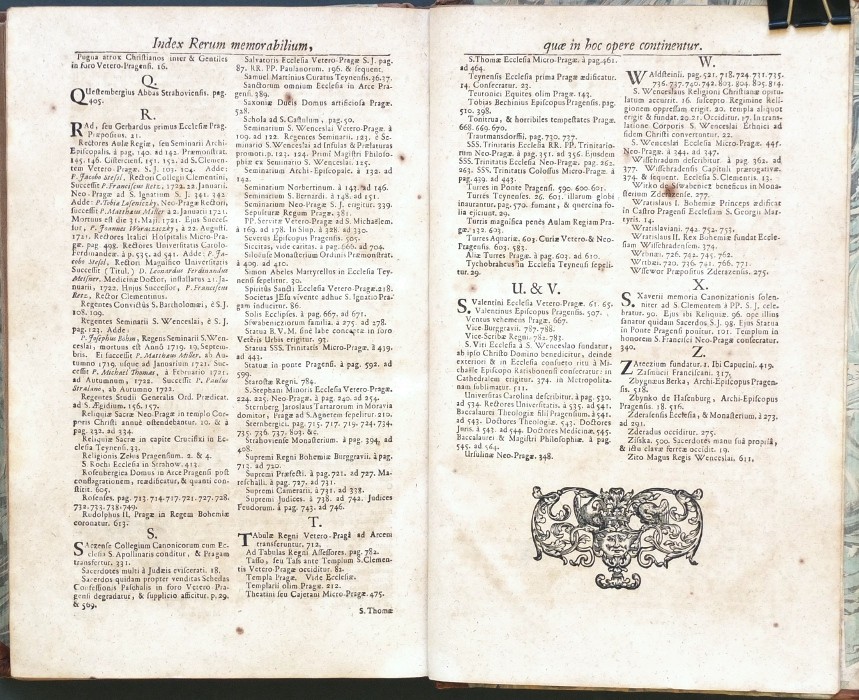 Index Rerum memorabilium,
Pugna atrox Christianos inter & Gentiles
in foro Vetero-Pragensi. 16.
Q.
QUestembergius Abbas Strahoviensis. pag.
405.
R.
RAd, seu Gerhardus primus Ecclesiæ Prag.
Præpositus. 21.
Rectores Aulæ Regiæ, seu Seminarii Archi-
Episcopalis. à pag. 140. ad 142. Præmonstrat.
145. 146. Cisterciens. 151. 152. ad S. Clemen-
tem Vetero-Pragæ S. J. 103. 104. Adde:
P. Jacobo Stessl, Rectori Collegii Clementini,
Successit P. Franciscus Retz, 1722. 22. Januarii.
Neo-Pragæ ad S. Ignatium S. J. 341. 342.
Adde: P. Tobiæ Lusenitzky, Neo-Pragæ Rectori,
successit P. Matthæus Miller à 2. Januarii 1721.
Mortuus est die 31. Maji. 1721. Ejus Succes-
sor, P. Joannes Woraczitzky, à 22. Augusti.
1721. Rectores Italici Hospitalis Micro-Pra-
gæ. pag. 498. Rectores Universitatis Carolo-
Ferdinandeæ. à p. 535. ad 541. Adde: P. Ja-
cobo Stessl, Rectori Magnifico Universitatis
Successit (Titul.) D. Leonardus Ferdinandus
Meisner, Medicinæ Doctor, installatus 21. Ja-
nuarii, 1722. Hujus Successor, P. Franciscus
Retz, Rector Clementinus.
Regentes Convictûs S. Bartholomæi, è S. J.
108. 109.
Regentes Seminarii S. Wenceslai, è S. J.
pag. 123. Adde:
P. Josephus Bohm, Regens Seminarii S. Wen-
ceslai, mortuus est Annô 1719. 19. Septem-
bris. Ei successit P. Matthæus Miller, ab Au-
tumno 1719. usque ad Januarium 1721. Suc-
cessit P. Michael Thomas, à Februario 1721.
ad Autumnum, 1722. Successit P. Paulus
Stralano, ab Autumno 1722.
Regentes Studii Generalis Ord. Prædicat.
ad S. Ægidium. 156. 157.
Reliquiæ Sacræ Neo-Pragæ in templo Cor-
poris Christi annuè ostendebantur. 10. & à
pag. 332. ad 334.
Reliquiæ Sacræ in capite Crucifixi in Ec-
clesia Teynensi. 33.
Religionis Zelus Pragensium. 2. & 4.
S. Rochi Ecclesia in Strahow. 413.
Rosenbergica Domus in Arce Pragensi post
conflagrationem, reædificatur, & quanti con-
stitit. 605.
Rosenses. pag. 713. 714. 717. 721. 727. 728.
732. 733. 738. 749.
Rudolphus II. Pragæ in Regem Bohemiæ
coronatur. 613.
S.
SAczense Collegium Canonicorum cum Ec-
clesia S. Apollinaris conditur, & Pragam
transfertur. 331.
Sacerdotes multi à Judæis eviscerati. 18.
Sacerdos quidam propter venditas Schedas
Confessionis Paschalis in foro Vetero-Pra-
gensi degradatur, & supplicio afficitur. p. 29.
& 569.
Salvatoris Ecclesia Vetero-Pragæ S. J. pag.
87. RR. PP. Paulanorum. 196. & sequent.
Samuel Martinius Curatus Teynensis. 36. 37.
Sanctorum omnium Ecclesia in Arce Pra-
gensi. 389.
Saxoniæ Ducis Domus artificiosa Pragæ.
528.
Schola ad S. Castulum, pag. 50.
Seminarium S. Wenceslai Vetero-Pragæ à
109. ad 122. Regentes Seminarii. 123. è Se-
minario S. Wenceslao ad Insulas & Prælaturas
promoti. p. 123. 124. Primi Magistri Philoso-
phiæ ex Seminario S. Wenceslai. 125.
Seminarium Archi-Episcopale. à 132. ad
142.
Seminarium Norbertinum. à 143. ad 146.
Seminarium S. Bernardi. à 148. ad 151.
Seminarium Neo-Pragæ S. J. erigitur. 339.
Sepulturæ Regum Pragæ. 381.
PP. Servitæ Vetero-Pragæ ad S. Michaëlem.
à 169. ad 178. In Slup. à 328. ad 330.
Severus Episcopus Pragensis. 505.
Siccitas, vide caritas. à pag. 666. ad 704.
Siloënse Monasterium Ordinis Præmonstrat.
à 409. ad 410.
Simon Abeles Martyrellus in Ecclesia Tey-
nensi sepelitur. 30.
Spiritûs Sancti Ecclesia Vetero-Pragæ. 218.
Societas JEsu vivente adhuc S. Ignatio Pra-
gam inducitur. 86.
Solis Ecclipses. à pag. 667. ad 671.
Siwabeniczìorum familia. à 275. ad 278.
Statua B. V. M. sine labe conceptæ in foro
Veteris Urbis erigitur. 93.
Statua SSS. Trinitatis Micro-Pragæ. à 439.
ad 443.
Statuæ in ponte Pragensi. à pag. 592. ad
599.
Starostæ Regni. 784.
S. Stephani Minoris Ecclesia Vetero-Pragæ.
224. 225. Neo-Pragæ à pag. 240. ad 254.
Sternberg Jaroslaus Tartarorum in Moravia
domitor, Pragæ ad S. Agnetem sepelitur. 210.
Sternbergici. pag. 715. 717. 719. 724. 734.
735. 736. 737. 803. &c.
Strahoviense Monasterium. à pag. 394. ad
408.
Supremi Regni Bohemiæ Burggravii. à pag.
713. ad 720.
Supremi Præfecti. à pag. 721. ad 727. Ma-
reschalli. à pag. 727. ad 731.
Supremi Camerarii. à 731. ad 338.
Supremi Judices. à 738. ad 742. Judices
Feudorum. à pag. 743. ad 746.
T.
TAbulæ Regni Vetero-Pragâ ad Arcem
transferuntur. 712.
Ad Tabulas Regni Assessores. pag. 782.
Tasso, seu Tass ante Templum S. Clemen-
tis Vetero-Pragæ occiditur. 82.
Templa Pragæ. Vide Ecclesiæ.
Templarii olim Pragæ. 212.
Theatini seu Cajetani Micro-Pragæ. 475.
S. Thomæ
quæ in hoc opere continentur.
S. Thomæ Ecclesia Micro-Pragæ. à pag. 461.
ad 464.
Teynensis Ecclesia prima Pragæ ædificatur.
14. Consecratur. 23.
Teutonici Equites olim Pragæ. 143.
Tobias Bechinius Episcopus Pragensis. pag.
510. 398.
Tonitrua, & horribiles tempestates Pragæ.
668. 669. 670.
Trautmansdorffii. pag. 730. 737.
SSS. Trinitatis Ecclesia RR. PP. Trinitario-
rum Neo-Pragæ. à pag. 351. ad 356. Ejusdem
SSS. Trinitatis Ecclesia Neo-Pragæ. pag. 262.
263. SSS. Trinitatis Colossus Micro-Pragæ. à
pag. 439. ad 443.
Turres in Ponte Pragensi. 590. 600. 601.
Turres Teynenses. 26. 601. illarum globi
inaurantur. pag. 570. fumant, & quercina fo-
lia ejiciunt. 29.
Turris magnifica penès Aulam Regiam Pra-
gæ. 132. 603.
Turres Aquariæ. 603. Curiæ Vetero- & Neo-
Pragensis. 603. 583.
Aliæ Turres Pragæ. à pag. 603. ad 610.
Tychobraheus in Ecclesia Teynensi sepeli-
tur. 29.
U. & V.
S. Valentini Ecclesia Vetero-Pragæ. 61. 65.
Valentinus Episcopus Pragensis. 507.
Ventus vehemens Pragæ. 667.
Vice-Burggravii. 787. 788.
Vice-Scribæ Regni. 782. 783.
S. Viti Ecclesia à S. Wenceslao fundatur,
ab ipso Christo Domino benedicitur, deinde
exteriori & in Ecclesia consueto ritu à Mi-
chaële Episcopo Ratisbonensi consecratur: in
Cathedralem erigitur. 374. in Metropolita-
nam sublimatur. 511.
Universitas Carolina describitur. à pag. 530.
ad 534. Rectores Universitatis. à 535. ad 541.
Baccalaurei Theologiæ filii Pragensium. à 541.
ad 543. Doctores Theologiæ. 543. Doctores
Juris. à 543. ad 544. Doctores Medicinæ. 545.
Baccalaurei & Magistri Philosophiæ. à pag.
545. ad 564.
Ursulinæ Neo-Pragæ. 398.
W.
WAldsteinii. pag. 521. 718. 724. 731. 735.
736. 737. 740. 742. 803. 804. 805. 814.
S. Wenceslaus Religioni Christianæ opitu-
latum accurrit. 16. suscepto Regimine Reli-
gionem oppressam erigit. 20. templa aliquot
erigit & fundat. 20. 21. Occiditur. 17. In trans-
latione Corporis S. Wenceslai Ethnici ad
fidem Christi convertuntur. 22.
S. Wenceslai Ecclesia Micro-Pragæ. 445.
Neo-Pragæ. à 344. ad 347.
Wissehradum describitur. à pag. 362. ad
377. Wissehradensis Capituli prærogativæ.
374. & sequent. Ecclesia S. Clementis. 13.
Witko de Siwabenicz beneficus in Mona-
sterium Zderazense. 277.
Wratislaus I. Bohemiæ Princeps ædificat
in Castro Pragensi Ecclesiam S. Georgii Mar-
tyris. 14.
Wratislaviani. 742. 752. 753.
Wratislaus II. Rex Bohemiæ fundat Eccle-
siam Wissehradensem. 374.
Webnan. 726. 742. 745. 762.
Wrtbæi. 720. 736. 741. 766. 771.
Wssewor Præpositus Zderazensis. 275.
X.
S. Xaverii memoria Canonizationis solen-
niter ad S. Clementem à PP. S. J. cele-
bratur. 90. Ejus ibi Reliquiæ. 96. ope illius
sanatur quidam Sacerdos S. J. 98. Ejus Statua
in Ponte Pragensi ponitur. 101. Templum in
honorem S. Francisci Neo-Pragæ consecratur.
340.
Z.
ZAteczium fundatur. 2. Ibi Capucini. 419.
Zasmucii Franciscani. 317.
Zbygneus Berka, Archi-Episcopus Pragen-
sis. 518.
Zbynko de Hasenburg, Archi-Episcopus
Pragensis. 18. 516.
Zderasensis Ecclesia, & Monasterium. à 273.
ad 291.
Zderadus occiditur. 275.
Zisska, 500. Sacerdotes manu suâ propriâ,
& ictu clavæ ferreæ occidit. 19.
Zito Magus Regis Wenceslai. 611.